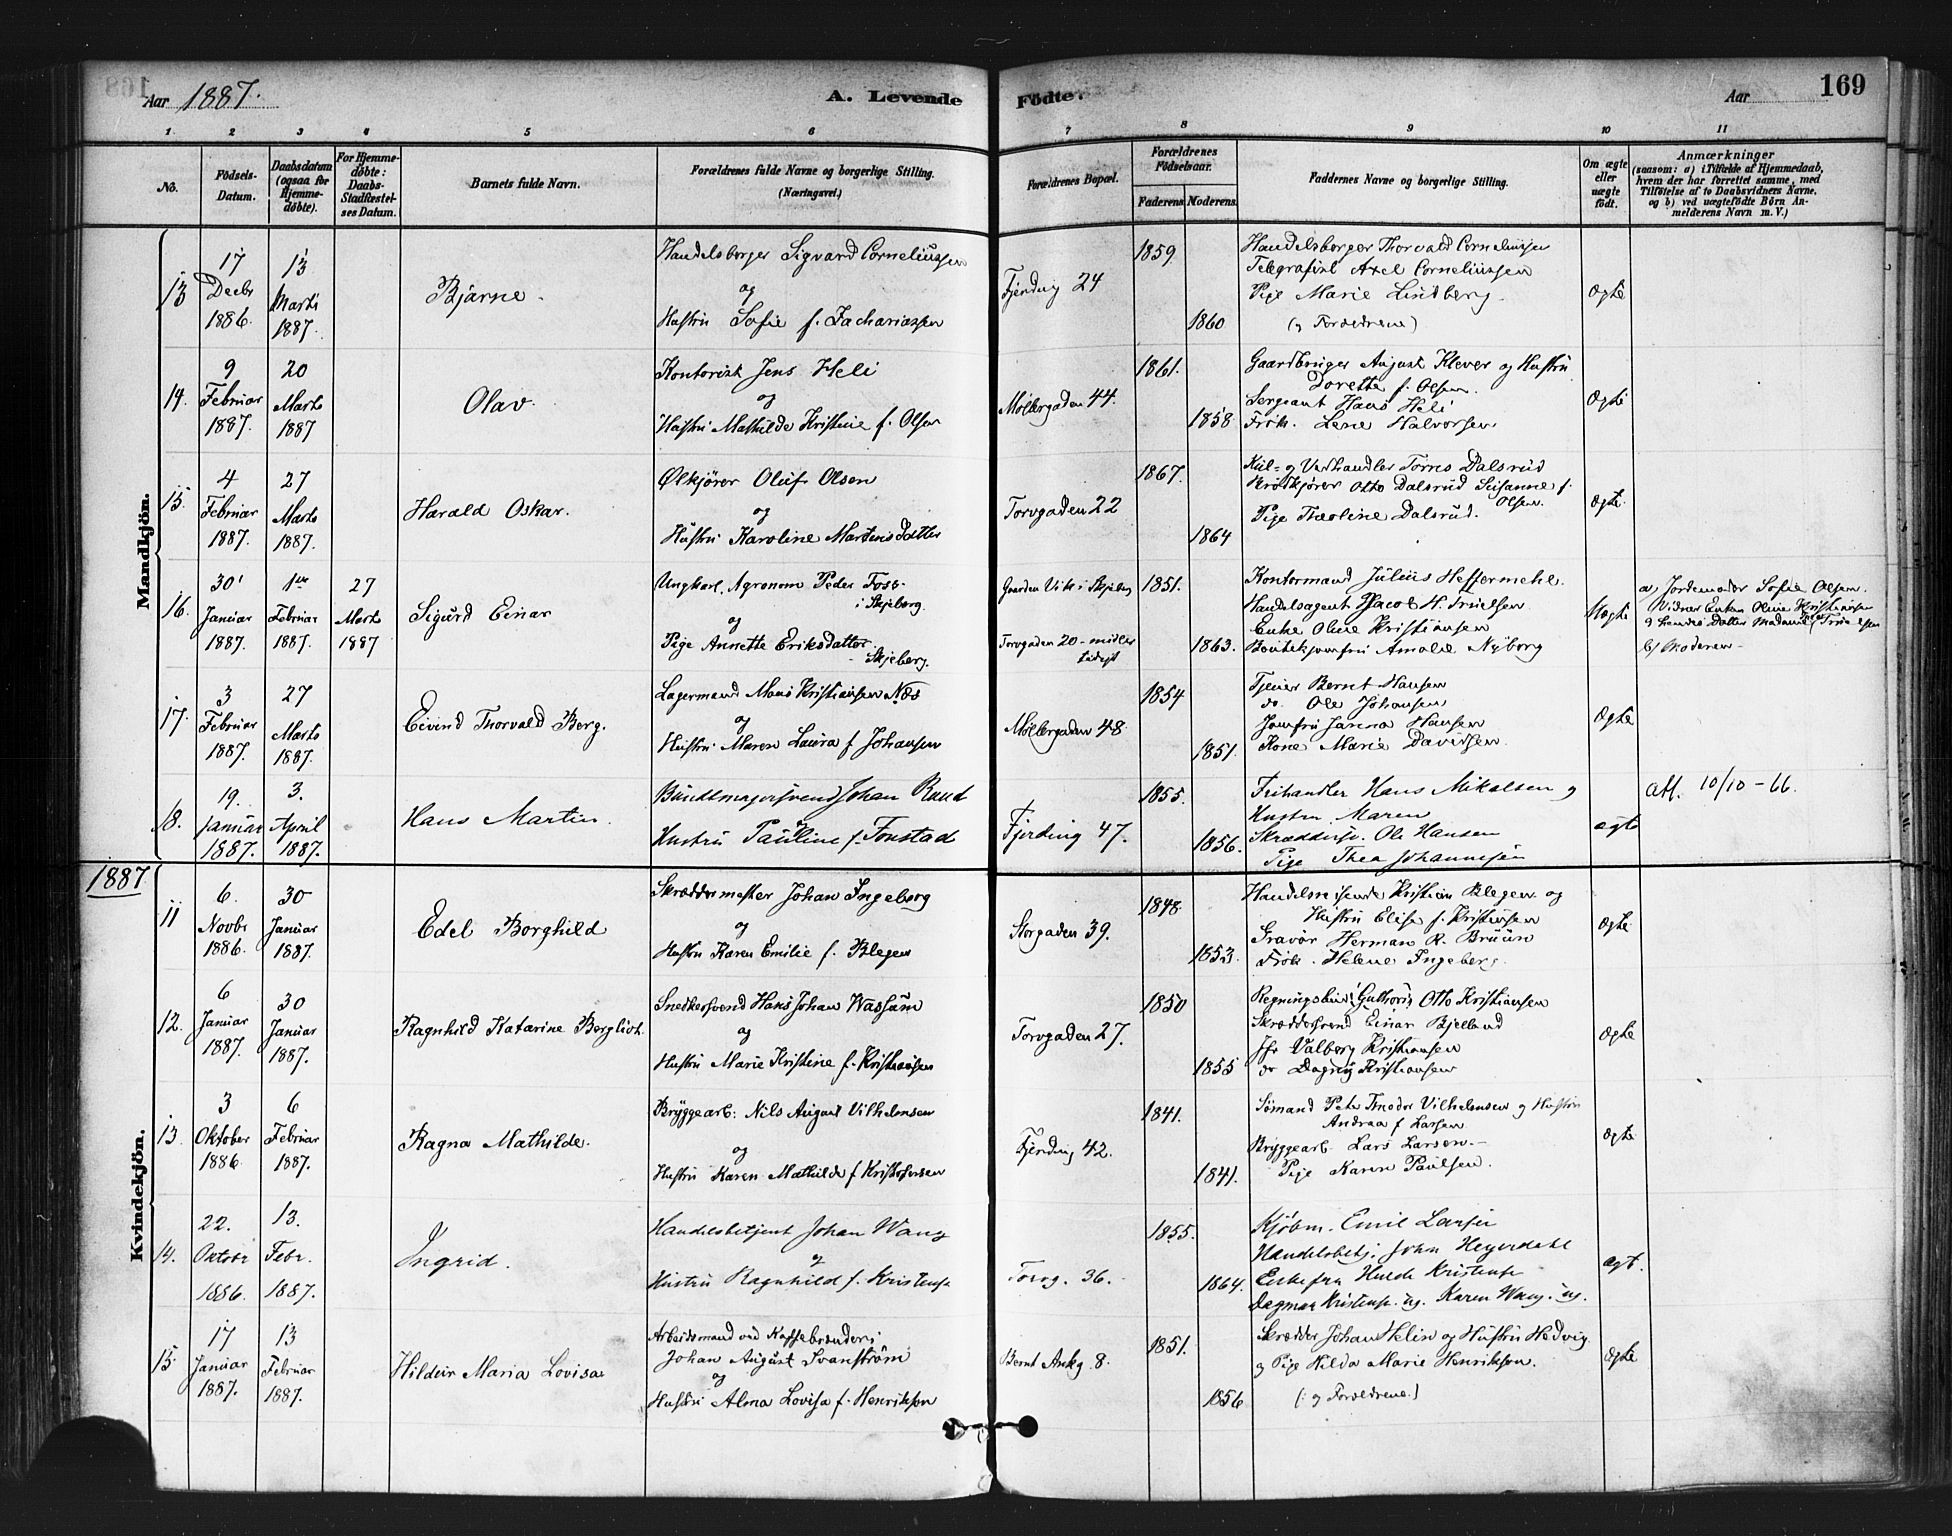 Aar 1887.
A. Levende
Fødte.
Aar
169
1 2 3 4 5 6 7 8 9 10 11
No.
Fødsels-Datum.
Daabsdatum (ogsaa for Hjemme-døbte).
For Hjemme-døbte: Daabs-Stadfæstel-ses Datum.
Barnets fulde Navn.
Forældrenes fulde Navne og borgerlige Stilling. (Næringsvei.)
Forældrenes Bopæl.
Forældrenes Fødselsaar.
Faderens.
Moderens.
Faddernes Navne og borgerlige Stilling.
Om ægte eller uægte født.
Anmærkninger
(saasom: a) i Tilfælde af Hjemmedaab, hvem der har forrettet samme, med Tilføielse af to Daabsvidners Navne, og b) ved uægtefødte Børn An-melderens Navn m. V.)
Mandkjön.
13
17 Decbr 1886.
13 Marts 1887.
Bjarne.
Handelsborger Sigvard Corneliussen
og
Hustru Sofie f. Zachariassen
Fjerding 24
1859.
1860
Handelsborger Thorvald Corneliussen
Telegrafist Axel Corneliussen
Pige Marie Lindberg.
(og Forældrene)
Ægte
14.
9 Februar 1887.
20 Marts 1887
Olav.
Kontorist Jens Heli
og
Hustru Mathilde Kristine f. Olsen
Møllergaden 44.
1861.
1858.
Gaardbruger August Klever og Hustru
Dorette f. Olsen.
Sergeant Hans Heli
Frøk. Lene Halvorsen
Ægte
15.
4 Februar 1887.
27 Marts 1887.
Harald Oskar.
Ølkjører Oluf Olsen
og
Hustru Karoline Martinsdatter
Torvgaden 22
1867.
1864
Dalsrud
Otto Dalsrud Susanne f. Olsen.
Pige Theoline Dalsrud.
Ægte.
16.
30 Januar 1887.
1ste Februar 1887.
27 Marts 1887
Sigurd Einar
Ungkarl, Agronom Peder Foss
i Skjeberg.
og
Pige Annette Eriksdatter
Skjeberg.
Gaarden Vik i Skjeberg
Torvgaden 20 - midler
tidigt
1851.
1863.
Kontormand Julius Heffermehl.
Handelsagent Jacob H. Truelsen
Enke Oline Kristiansen
Butikjomfru Amalie Nyborg
Uægte
a) Jordemoder Sofie Olsen.
Vidner Enken Oline Kristiansen
b) Moderen
17.
3 Februar 1887.
27 Marts 1887.
Eivind Thorvald Berg.
Lagermand Mons Kristiansen Næs
og
Hustru Maren Laura f. Johansen
Møllergaden 48
1854
1851.
Tjener Bernt Hansen
do. Ole Johansen
Jomfru Janna Hansen
Kone Marie Davidsen.
Ægte
18.
19. Januar 1887.
3. April 1887.
Hans Martin.
Buntmagersvend Johan Ruud
og
Hustru Pauline f. Fonstad
Fjerding 47.
1855.
1856.
Frihandler Hans Mikalsen og
Hustru Maren
Skræddersv. Ole Hansen
Pige Thea Johannesen
ægte
Att. 10/10 - 66.
1887
Kvindekjön.
11
6. Novbr 1886.
30 Januar 1887.
Edel Borghild
Skræddermester Johan Ingeberg
og
Hustru Karen Emilie f. Blegen
Storgaden 39.
1848
1853.
Handelsreisende Kristian Blegen og
Hustru Elise f. Kristensen
Gravør Herman R. Bruun
Frøk. Helene Ingeberg.
Ægte
12.
6 Januar 1887.
30 Januar 1887.
Ragnhild Katarine Bergliot.
Snedkersvend Hans Johan Wassum
og
Hustru Marie Kristine f. Kristiansen
Torvgaden 27.
1850
1855
Otto Kristiansen
Skræddersvend Einar Bjelland
Jfr Valborg Kristiansen
do Dagny Kristiansen
Ægte
13.
3 Oktober 1886.
6 Februar 1887.
Ragna Mathilde.
Bryggearb: Nils August Vilhelmsen
og
Hustru Karen Mathilde f. Kristofersen
Fjerding 42.
1841.
1841.
Sømand Peter Theodor Vilhelmsen og Hustru
Andrea f. Larsen
Bryggearb. Lars Larsen.
Pige Karen Paulsen.
Ægte
14.
22. Oktobr 1886.
13. Febr. 1887.
Ingrid.
Handelsbetjent Johan Wang
og
Hustru Ragnhild f. Kristens.
Torvg. 36.
1855.
1864.
Kjøbm. Emil Larsen
Handelsbetj. John Heyerdahl
Enkefru Hulda Kristens.
Dagmar Kristens. ug. Karen Wang. ug.
ægt.
15.
17 Januar 1887.
13 Februar 1887.
Hildur Maria Lovisa
Arbeidsmand ved Kaffebrænderi
Johan August Svanstrøm
og
Hustru Alma Lovisa f. Henrikson
Bernt Ankg. 8.
1851.
1856
Skrædder Johan Helin og Hustru Hedvig
og Pige Hilda Marie Henrikson.
(: og Forældrene.)
Ægte